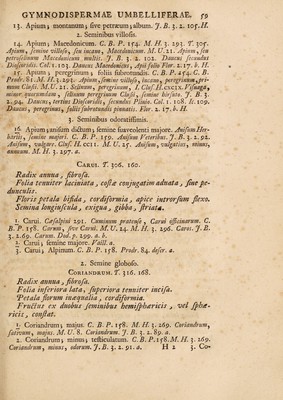 GYMNODISPERMÆ UMBELLIFERAE. 59
13. Apium; montanum; sive petræum; album. J. B. 3. 2. 105. H.
2. Seminibus villosis.
14. Apium; Macedonicum. C. B. P. 154. M. H. 3. 293. T. 305.
Apium, semine villoso, seu incano, Macedonicum. M. U. 21. Apium, seu
petroselinum Macedonicum multis. J. B. 3. 2. 102. Daucus secundus
Dioscoridis. Col: 1. 103. Daucus Macedonicus, Apii folio Flor. 2. 17. b. H.
15. Apium; peregrinum; foliis subrotundis. C. B. P. 154. C. B.
Prodr. 81. M. H. 3. 292. Apium, semine villoso, incano, peregrinum, primum
Clusii. M. U. 21. Selinum, peregrinum, I. Clus. H. CXCIX. Visnaga,
minor; quorumdam, selinum peregrinum Clusii, semine hirsuto. J. B. 3.
2. 94. Daucus, tertius Dioscoridis, secundus Plinio. Col. 1. 108. Ic. 109.
Daucus, peregrinus, foliis subrotundis pinnatis. Flor. 2. 17. b. H.
3. Seminibus odoratissimis.
16. Apium; anisum dictum; semine suaveolenti majore. Anisum Herbariis,
semine majori. C. B. P. 159. Anisum Veteribus. J. B. 3. 2. 92.
Anisum, vulgare. Clus. H. CCII. M. U. 25. Anisum, vulgatius, minus,
annuum. M. H. 3. 297. a.
CARUI. T. 306. 160.
Radix annua, fibrosa.
Folia tenuiter laciniata, costæ conjugatim adnata, sine pedunculis.
Floris petala bifida, cordiformia, apice introrsum flexo.
Semina longiuscula, exigua, gibba, striata.
1. Carui. Cæsalpini 291. Cuminum pratense, Carui officinarum. C.
B. P. 158. Carum, sive Carui. M. U. 24. M. H. 3. 296. Caros. J. B.
3. 2. 69. Carum. Dod. p. 299. a. b.
2. Carui; semine majore. Vaill. a.
3. Carui; Alpinum. C. B. P. 158. Prodr. 84. descr. a.
2. Semine globoso.
CORIANDRUM. T. 316. 168.
Radix annua, fibrosa.
Folia inferiora lata, superiora tenuiter incisa.
Petala florum inæqualia, cordiformia.
Fructus ex duobus seminibus hemisphæricis, vel sphæricis,
constat.
1. Coriandrum; majus. C. B. P. 158. M. H. 3. 269. Coriandrum,
sativum, majus. M. U. 8. Coriandrum. J. B. 3. 2. 89. a.
2. Coriandrum; minus; testiculatum. C. B. P. 158. M. H. 3. 269.
Coriandrum, minus, odorum. J. B. 3. 2. 91. a.
H 2
3. Co-